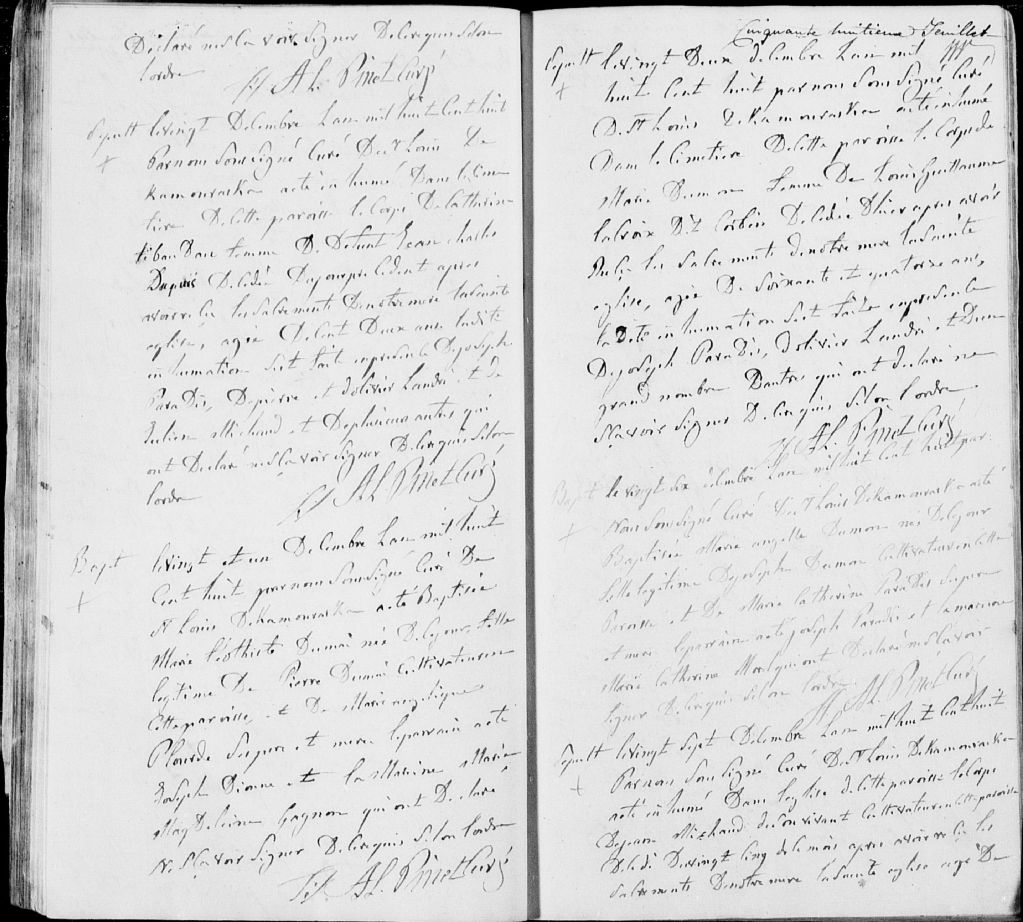 Déclaré ne sçavoir signer De ce requis selon
l'ordre
A L. Pinet Curé
Sepult le vingt Decembre L'an mil huit Cent huit
Par nous Soussigné Curé De St Louis De
Kamouraska a été inhumé Dans le Cime
tière De Cette paroisse le Corps De Catherine
tibaudau femme De Defunt Jean Charles
Dupuis Decedée Du jour precedent apres
avoir reçu les Sacrements De notre mere la sainte
eglise, agée De Cent Deux ans ladite
inhumation s'est faite en presence De Joseph
ParaDis, De pierre et d'olivier Landri et de
Julien Michaud et De plusieurs autres qui
ont Declaré ne sçavoir signer De ce requis selon
l'ordre
A L Pinet Curé
Bapt le vingt et un Decembre L'an mil huit
Cent huit par nous Soussigné Curé De
St Louis De Kamouraska a été Baptisée
Marie Dumai née De ce jour, fille
legitime De Pierre Dumai Cultivateur en
Cette paroisse, et De Marie angelique
Plourde Ses pere et mere le parrain a été
Joseph Dionne et la Marraine Marie
Magdeleine Gagnon qui ont Declaré
Ne sçavoir signer De ce requis selon l'ordre
A L. Pinet Curé
Cinquante huitieme Feuillet
Sepult le vingt Deux decembre L'an mil
huit Cent huit par nous Soussigné Curé
De St Louis De Kamouraska a été inhumé
Dans le Cimetiere De Cette paroisse le Corps de
Marie Dumon femme De Louis Guillaume
lacroix Dit Corbin Decedée D'hier apres avoir
Reçu les Sacrements de notre mere la Sainte
eglise, agée De Soixante et quatorze ans,
la Dite inhumation s'est faite en presence
De joseph ParaDis, d'olivier Landri et D'un
grand nombre D'autres qui ont declaré ne
sçavoir signer De ce requis selon l'ordre
A L. Pinet Curé
Bapt le vingt six decembre L'an mil huit Cent huit par
Nous Soussigné Curé De St Louis De Kamouraska a été
Baptisée Marie angelle Dumon née De ce jour
fille legitime De joseph Dumon Cultivateur en Cette
Paroisse et De Marie Catherine ParaDis Ses pere
et mere le parrain a été joseph Paradis et la marraine
Marie Catherine qui ont Declaré ne sçavoir
signer De ce requis selon l'ordre
A L. Pinet Curé
Sepult le vingt Sept Decembre L'an mil huit Cent huit
Par nous Soussigné Curé De St Louis De Kamouraska
a été inhumé Dans l'eglise de Cette paroisse le Corps
De jean Michaud de son vivant Cultivateur en Cette paroisse
Decedé Du vingt Cinq de Ce mois apres avoir reçu les
Sacrements De notre mere la Sainte eglise agé De